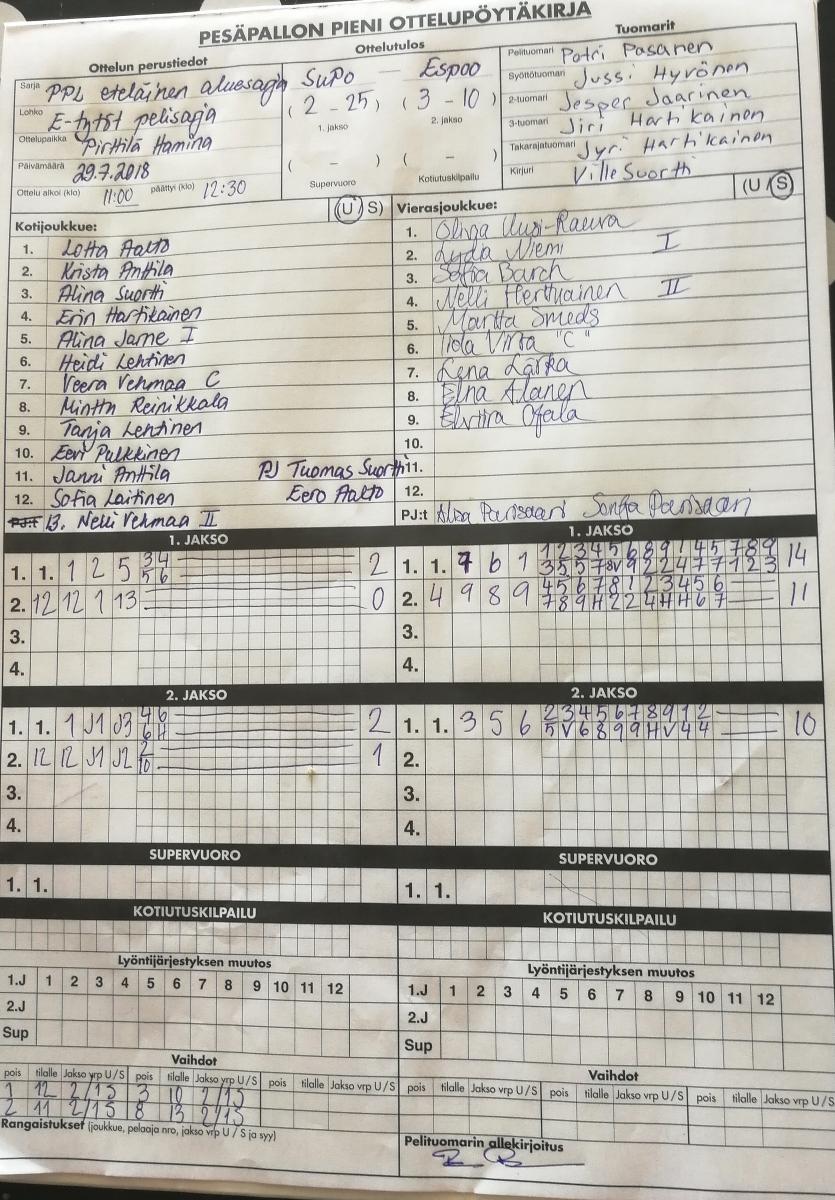 PESÄPALLON PIENI OTTELUPÖYTÄKIRJA
Ottelun perustiedot
Sarja PPL eteläinen aluesarja
Lohko E-tytöt pelisarja
Ottelupaikka Pirttilä Hamina
Päivämäärä 29.7.2018
Ottelu alkoi (klo) 11:00 päättyi (klo) 12:30
Ottelutulos
SuPo – Espoo
(2 – 25) (3 – 10)
1. jakso 2. jakso
( – ) ( – )
Supervuoro Kotiutuskilpailu
Tuomarit
Pelituomari Petri Pasanen
Syöttötuomari Jussi Hyvönen
2-tuomari Jesper Jaarinen
3-tuomari Jiri Hartikainen
Takarajatuomari Jyri Hartikainen
Kirjuri Ville Suortti
Kotijoukkue: (U S)
1. Lotta Aalto
2. Krista Anttila
3. Alina Suortti
4. Erin Hartikainen
5. Alina Jame I
6. Heidi Lehtinen
7. Veera Vehmaa C
8. Minttu Reinikkala
9. Tanja Lehtinen
10. Eevi Pulkkinen
11. Janni Anttila PJ Tuomas Suortti
12. Sofia Laitinen Eero Aalto
PJ:t 13. Nelli Vehmaa II
Vierasjoukkue: (U / S)
1. Olivia Uusi-Rauva
2. Lydia Niemi I
3. Sofia Barch
4. Nelli Herttuainen II
5. Martta Smeds
6. Iida Virta "C"
7. Lena Lärka
8. Elna Alanen
9. Elviira Ojala
10.
11.
12.
PJ:t Alisa Parissaari Sonja Parissaari
1. JAKSO
1. 1. 1 2 5 3 4 2
5 6
2. 12 12 1 13 0
3.
4.
1. JAKSO
1. 1. 7 6 1 1 2 3 4 5 6 8 9 1 4 5 7 8 9 14
3 5 5 7 8 V 9 2 2 4 7 7 1 2 3
2. 4 9 8 9 4 5 6 7 8 1 2 3 4 5 6 11
7 8 9 H 2 2 4 H H 6 7
3.
4.
2. JAKSO
1. 1. 1 J1 J3 4 6 2
6 H
2. 12 12 J1 J2 2 1
10
3.
4.
2. JAKSO
1. 1. 3 5 6 2 3 4 5 6 7 8 9 1 2 10
5 V 6 8 9 9 H V 4 4
2.
3.
4.
SUPERVUORO
1. 1.
SUPERVUORO
1. 1.
KOTIUTUSKILPAILU
KOTIUTUSKILPAILU
Lyöntijärjestyksen muutos
1.J 1 2 3 4 5 6 7 8 9 10 11 12
2.J
Sup
Lyöntijärjestyksen muutos
1.J 1 2 3 4 5 6 7 8 9 10 11 12
2.J
Sup
Vaihdot
pois tilalle Jakso vrp U/S pois tilalle Jakso vrp U/S pois tilalle Jakso vrp U/S
1 12 2/1S 3 10 2/1S
2 11 2/1S 8 13 2/1S
Rangaistukset (joukkue, pelaaja nro, jakso vrp U / S ja syy)
Vaihdot
pois tilalle Jakso vrp U/S pois tilalle Jakso vrp U/S pois tilalle Jakso vrp U/S
Pelituomarin allekirjoitus